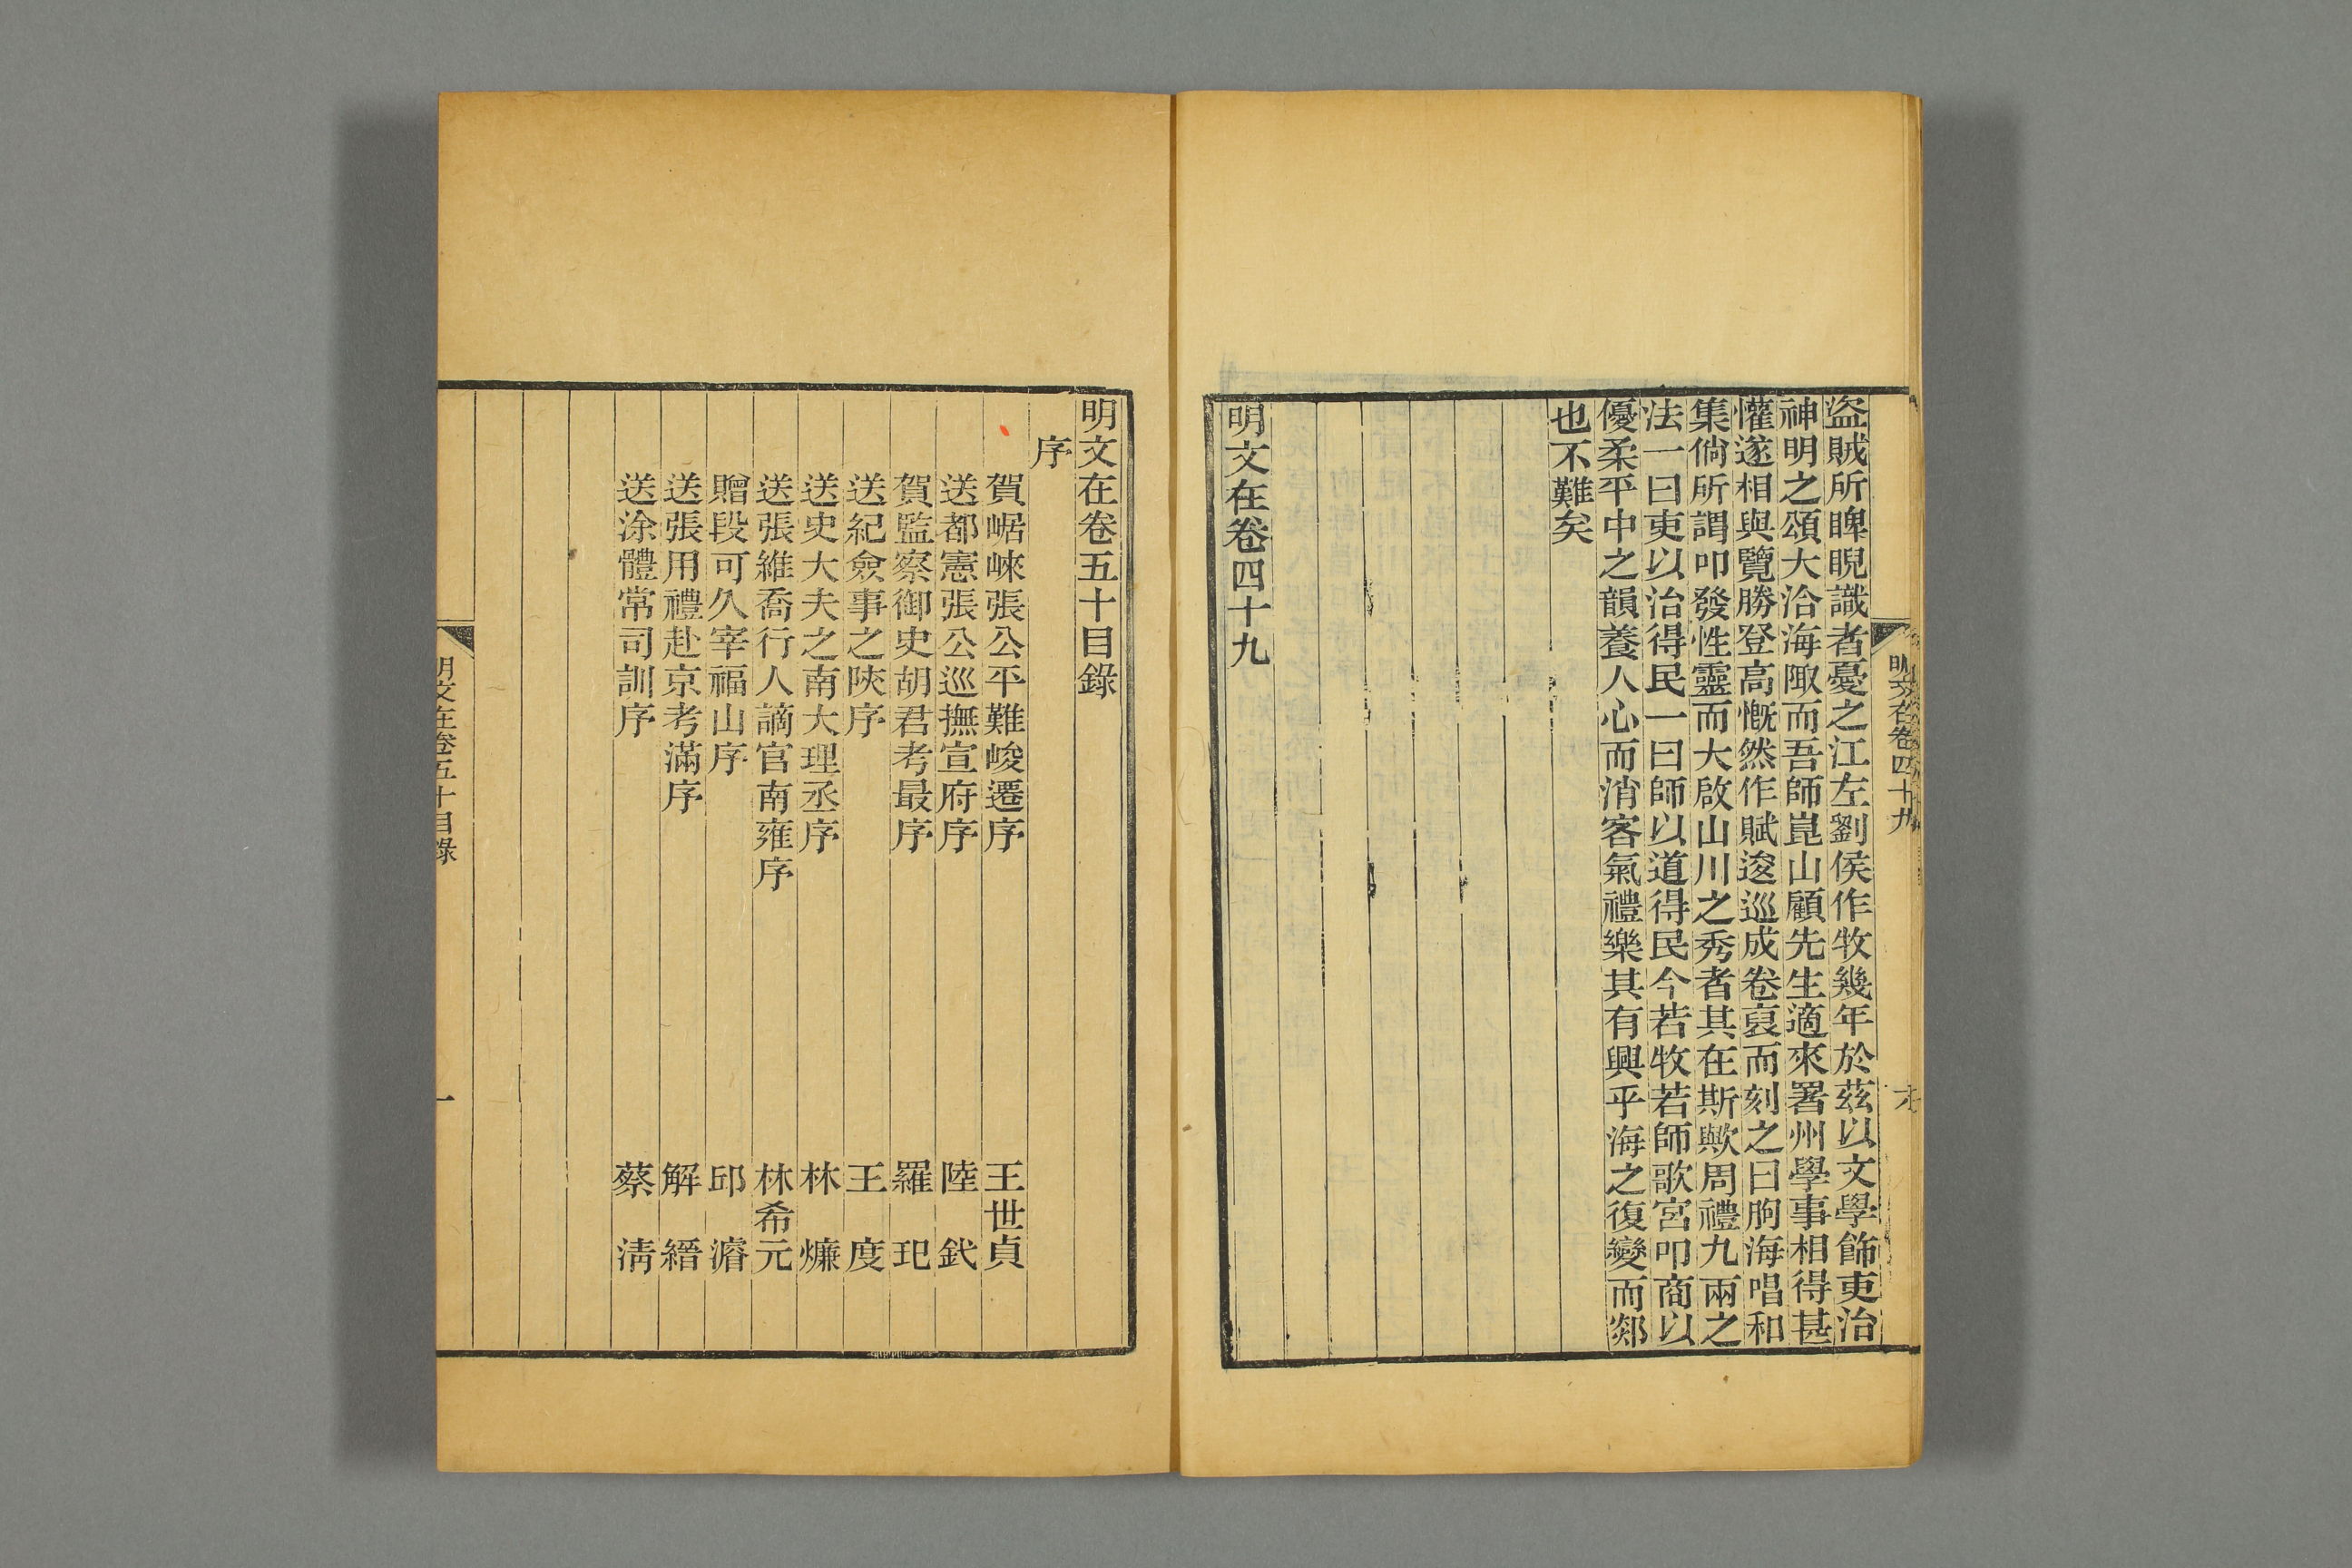 盜賊所睥睨識者憂之江左劉侯作牧幾年於茲以文學飾吏治
神明之頌大洽海陬而吾師崑山顧先生適來署州學事相得甚
懽遂相與覽勝登高慨然作賦逡巡成卷裒而刻之曰朐海唱和
集倘所謂叩發性靈而大啟山川之秀者其在斯歟周禮九兩之
法一曰吏以治得民一曰師以道得民今若牧若師歌宮叩商以
優柔平中之韻養人心而消客氣禮樂其有興乎海之復變而郯
也不難矣
明文在卷四十九
明文在卷四十九
明文在卷五十目錄
序
賀崌崍張公平難峻遷序 王世貞
送都憲張公巡撫宣府序 陸 釴
賀監察御史胡君考最序 羅 玘
送紀僉事之陝序 王 度
送史大夫之南大理丞序 林 燫
送張維喬行人謫官南雍序 林希元
贈段可久宰福山序 邱 濬
送張用禮赴京考滿序 解 縉
送涂體常司訓序 蔡 清
明文在卷五十目錄
一